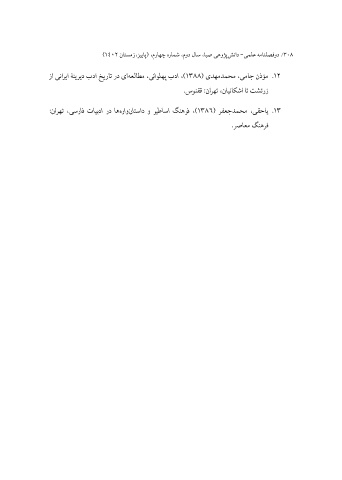 ۳۰۸/ دوفصلنامه علمی- دانش‌پژوهی صبا، سال دوم، شماره چهارم، (پاییز، زمستان ۱۴۰۲)
۱۲. مؤذن جامی، محمدمهدی (۱۳۸۸)، ادب پهلوانی، مطالعه‌ای در تاریخ ادب دیرینۀ ایرانی از
زرتشت تا اشکانیان، تهران: ققنوس.
۱۳. یاحقی، محمدجعفر (۱۳۸۶)، فرهنگ اساطیر و داستان‌واره‌ها در ادبیات فارسی، تهران:
فرهنگ معاصر.